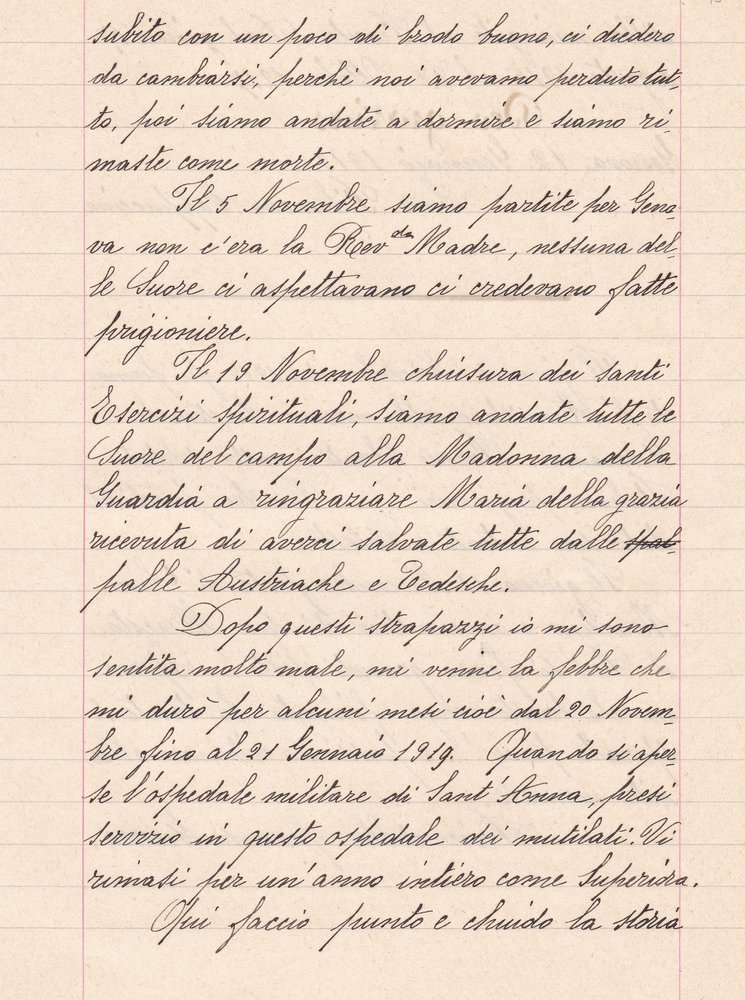 subito con un poco di brodo buono, ci diédero
da cambiársi, perché noi avevamo perduto tut-
to, poi siamo andate a dormire e siamo ri-
maste come morte.
Il 5 Novembre siamo partite per Geno-
va non c'era la Rev.da Madre, nessuna del-
le Suore ci aspettavano ci credevano fatte
prigioniere.
Il 19 Novembre chiusura dei santi
Esercizi spirituali, siamo andate tutte le
Suore del campo alla Madonna della
Guardia a ringraziare Maria della grazia
ricevuta di averci salvate tutte dalle spal-
palle Austriache e Tedesche.
Dopo questi strapazzi io mi sono
sentita molto male, mi venne la febbre che
mi durò per alcuni mesi cioè dal 20 Novem-
bre fino al 21 Gennaio 1919. Quando si aper-
se l'ospedale militare di Sant'Anna, presi
servizio in questo ospedale dei mutilati. Vi
rimasi per un'anno intiero come Superióra.
Qui faccio punto e chiudo la storia